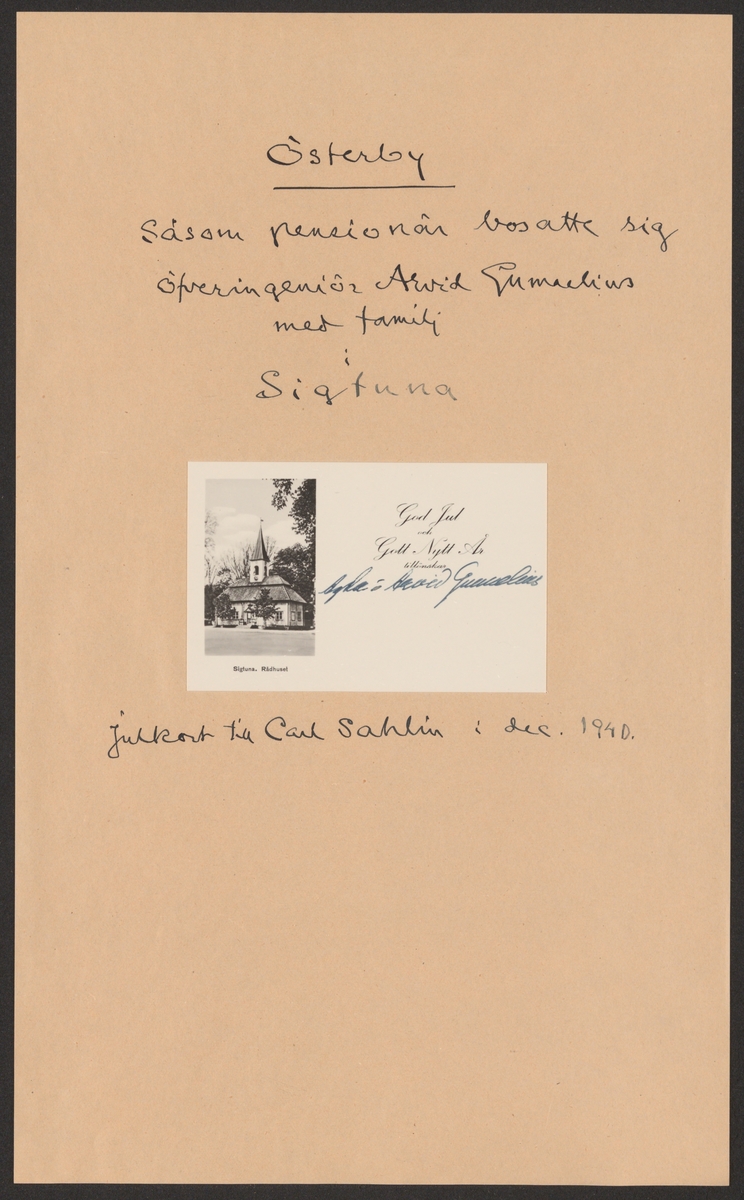 Österby
Såsom pensionär bosatte sig
öfveringeniör Arvid Gumaelius
med familj
i
Sigtuna
God Jul
och
Gott Nytt År
tillönskas
o Arvid Gumaelius
Sigtuna. Rådhuset
Julkort till Carl Sahlin i dec. 1940.